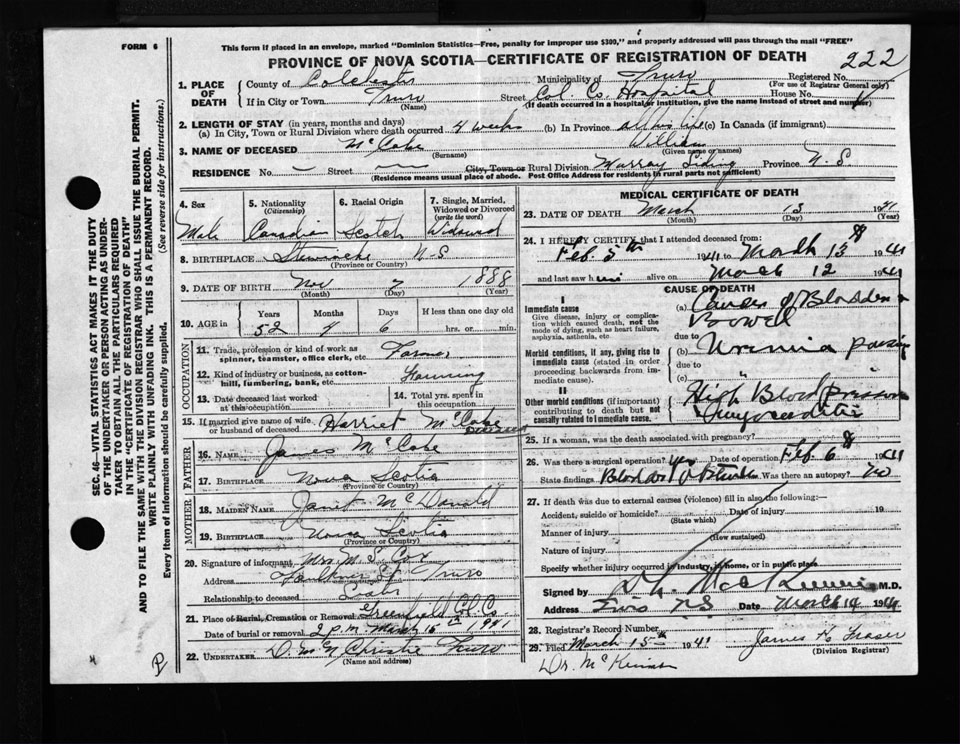 FORM 6
This form if placed in an envelope, marked "Dominion Statistics—Free, penalty for improper use $300," and properly addressed will pass through the mail "FREE"
PROVINCE OF NOVA SCOTIA—CERTIFICATE OF REGISTRATION OF DEATH
222
1. PLACE OF DEATH
County of Colchester Municipality of Truro Registered No.
(For use of Registrar General only)
If in City or Town Truro Street Col. Co. Hospital House No.
(Name) (If death occurred in a hospital or institution, give the name instead of street and number)
2. LENGTH OF STAY (in years, months and days)
(a) In City, Town or Rural Division where death occurred 4 weeks (b) In Province all his life (c) In Canada (if immigrant)
3. NAME OF DECEASED McCabe William
(Surname) (Given name or names)
RESIDENCE No. — Street — City, Town or Rural Division Murray Siding Province N.S
(Residence means usual place of abode. Post Office Address for residents in rural parts not sufficient)
4. Sex
Male
5. Nationality
(Citizenship)
Canadian
6. Racial Origin
Scotch
7. Single, Married, Widowed or Divorced
(write the word)
Widowed
8. BIRTHPLACE Stewiacke N-S
(Province or Country)
9. DATE OF BIRTH Nov 7 1888
(Month) (Day) (Year)
10. AGE in
Years Months Days If less than one day old
52 4 6 hrs. or min.
OCCUPATION
11. Trade, profession or kind of work as spinner, teamster, office clerk, etc. Farmer
12. Kind of industry or business, as cotton-mill, lumbering, bank, etc. Farming
13. Date deceased last worked at this occupation
14. Total yrs. spent in this occupation
15. If married give name of wife or husband of deceased Harriet McCabe
FATHER
16. Name James McCabe
17. Birthplace Nova Scotia
(Province or Country)
MOTHER
18. MAIDEN NAME Janet McDonald
19. Birthplace Nova Scotia
(Province or Country)
20. Signature of informant Mrs M. S. Cox
Address Faulkner St Truro
Relationship to deceased Sister
21. Place of Burial, Cremation or Removal Greenfield Col. C
Date of burial or removal 2 p.m March 15th 1941
22. UNDERTAKER D. McN Christie Truro
(Name and address)
MEDICAL CERTIFICATE OF DEATH
23. DATE OF DEATH March 13 1941
(Month) (Day) (Year)
24. I HEREBY CERTIFY that I attended deceased from
Feb. 5th 1941 to March 13 1941
and last saw him alive on March 12 1941
CAUSE OF DEATH
I
Immediate cause
Give disease, injury or complication which caused death, not the mode of dying, such as heart failure, asphyxia, asthenia, etc.
(a) Cancer of Bladder &
Bowell
due to
Morbid conditions, if any, giving rise to immediate cause (stated in order proceeding backwards from immediate cause).
(b)
due to
(c)
II
Other morbid conditions (if important) contributing to death but not causally related to immediate cause.
High Blood pressure
25. If a woman, was the death associated with pregnancy?
26. Was there a surgical operation? yes Date of operation Feb. 6 1941
State findings Was there an autopsy? no
27. If death was due to external causes (violence) fill in also the following:—
Accident, suicide or homicide? Date of injury 19
(State which)
Manner of injury
(How sustained)
Nature of injury
Specify whether injury occurred in industry, in home, or in public place
Signed by M.D.
Address Truro NS Date March 14 1941
28. Registrar's Record Number
29. Filed March 15th 1941 James H. Fraser
(Division Registrar)
Dr. McKinnon
SEC. 46—VITAL STATISTICS ACT MAKES IT THE DUTY OF THE UNDERTAKER OR PERSON ACTING AS UNDERTAKER TO OBTAIN ALL THE PARTICULARS REQUIRED IN THE "CERTIFICATE OF REGISTRATION OF DEATH" AND TO FILE THE SAME WITH THE DIVISION REGISTRAR WHO SHALL ISSUE THE BURIAL PERMIT.
WRITE PLAINLY WITH UNFADING INK. THIS IS A PERMANENT RECORD.
Every item of information should be carefully supplied. (See reverse side for instructions.)